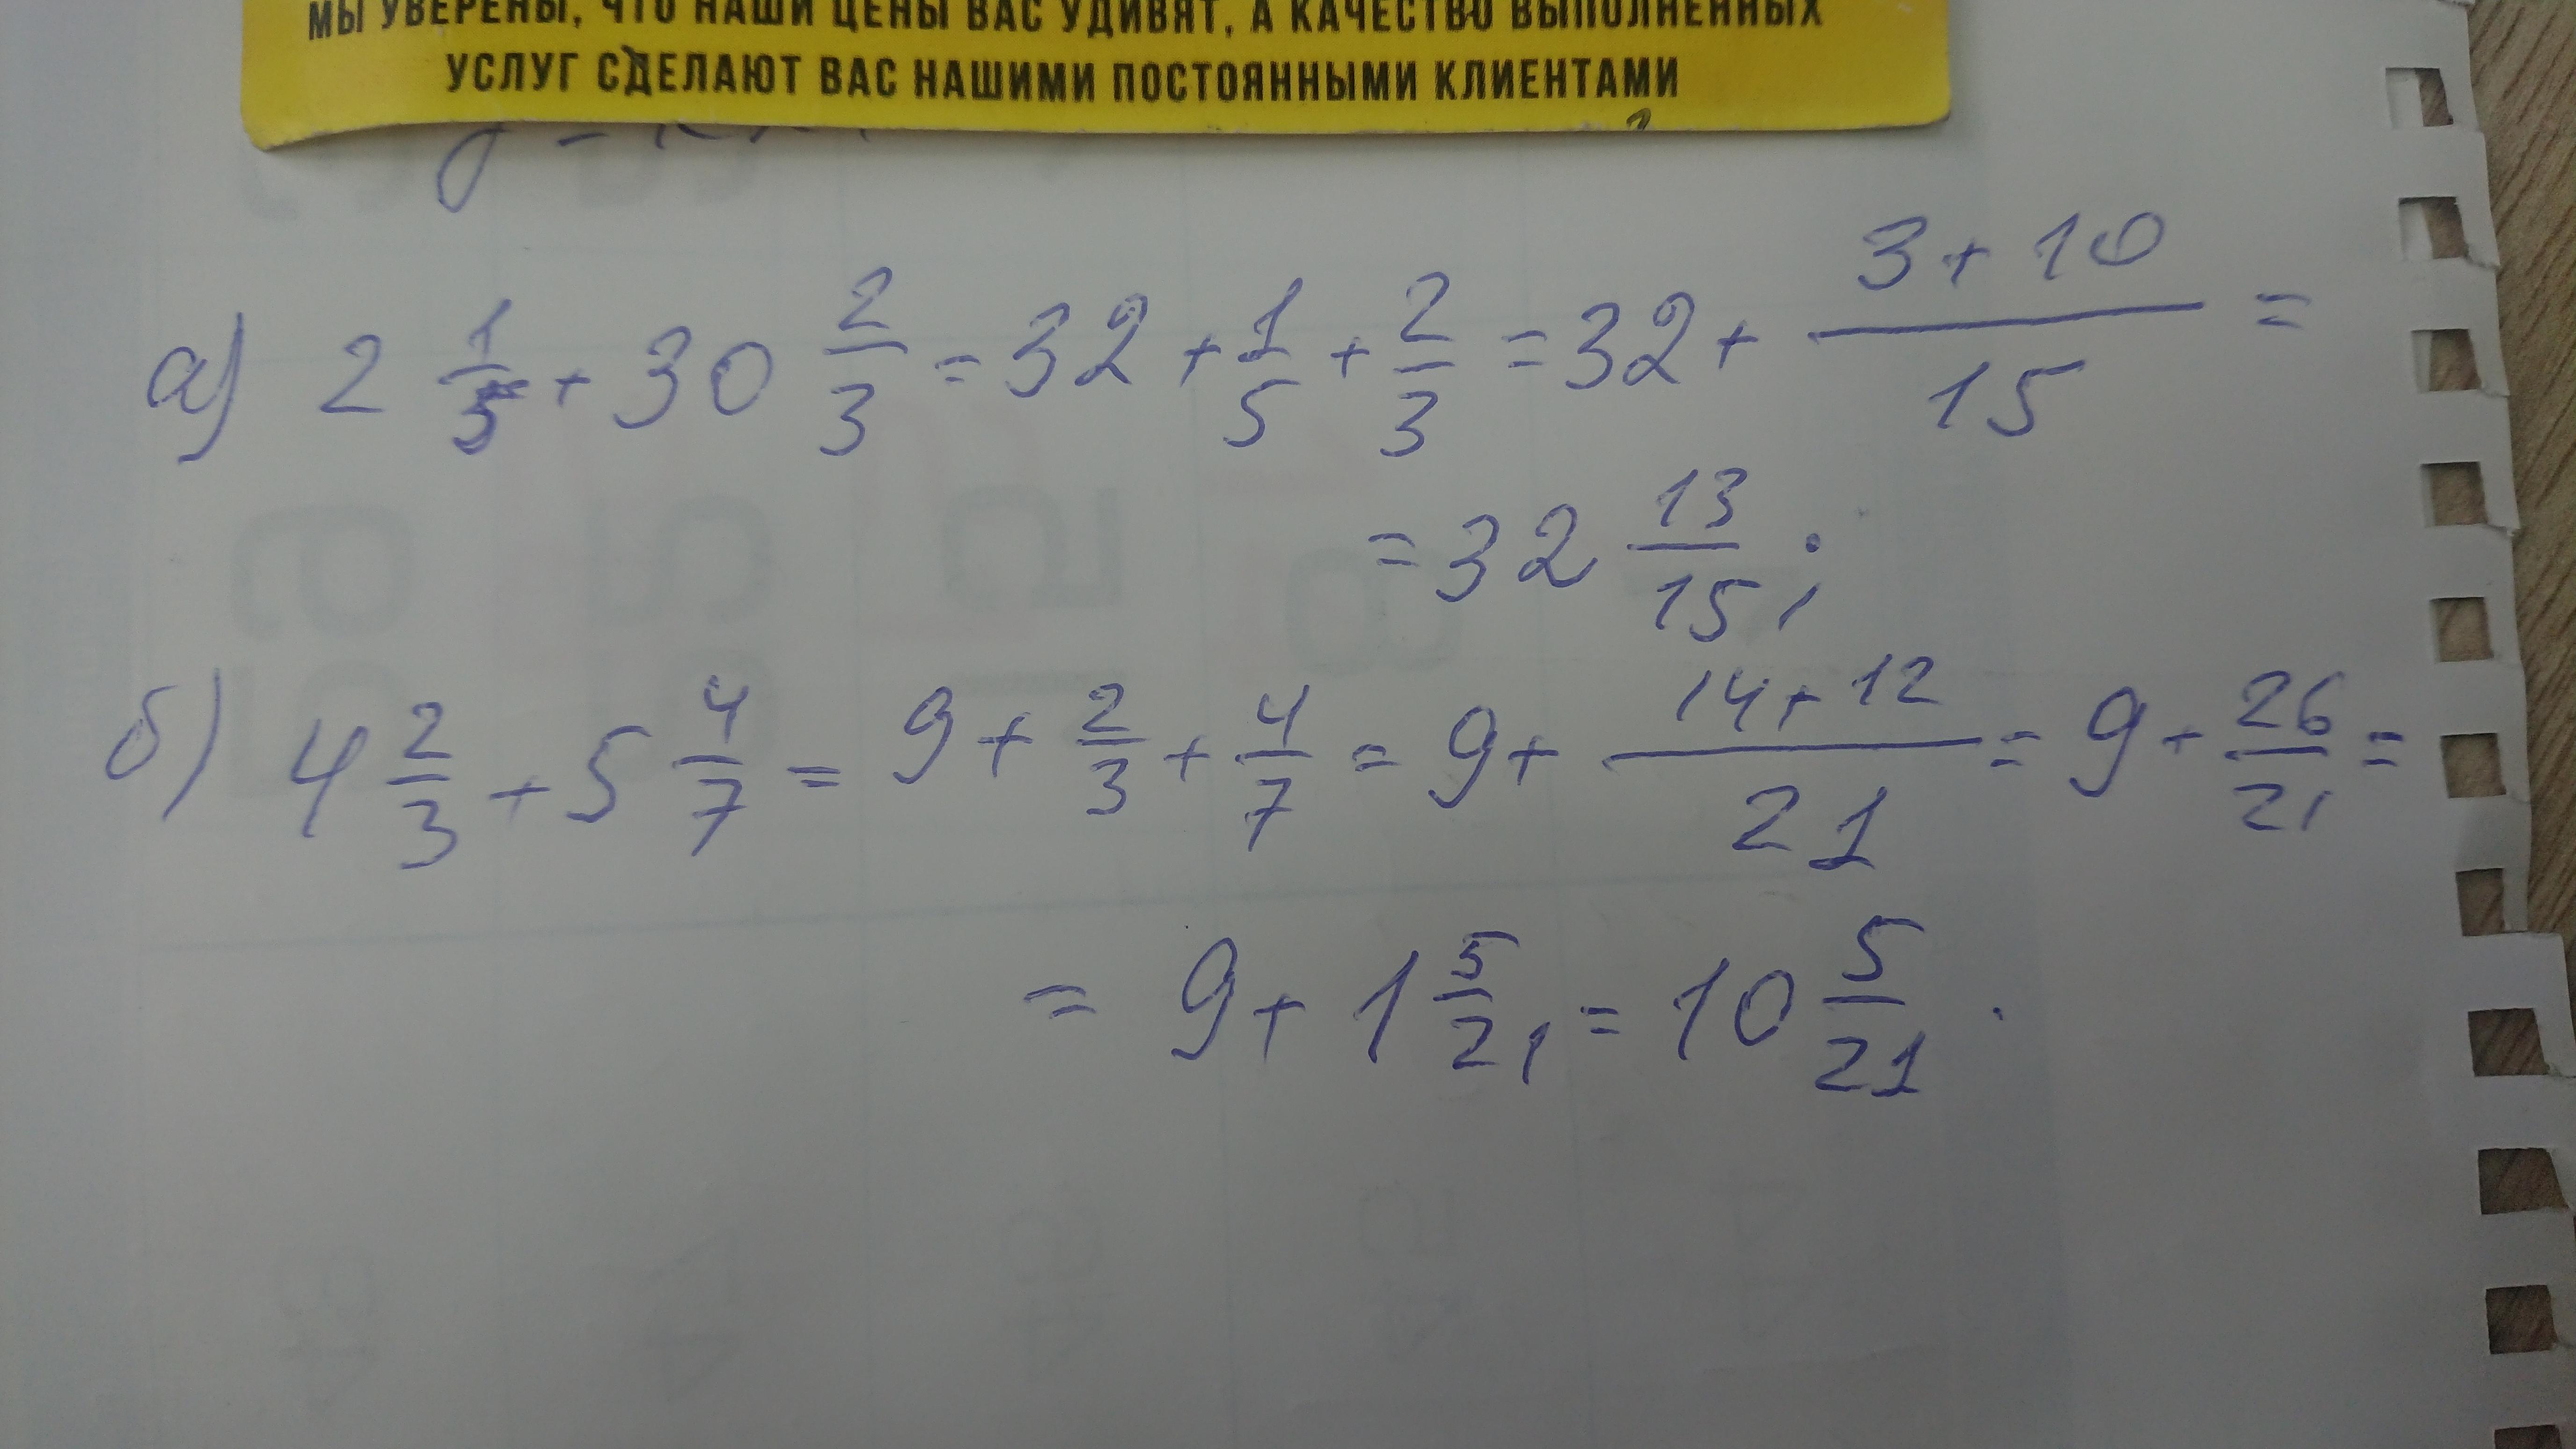 МЫ УВЕРЕНЫ, ЧТО НАШИ ЦЕНЫ ВАС УДИВЯТ, А КАЧЕСТВО ВЫПОЛНЕННЫХ
УСЛУГ СДЕЛАЮТ ВАС НАШИМИ ПОСТОЯННЫМИ КЛИЕНТАМИ
а) 2 1/5 + 30 2/3 = 32 + 1/5 + 2/3 = 32 + (3 + 10)/15 =
= 32 13/15 ;
б) 4 2/3 + 5 4/7 = 9 + 2/3 + 4/7 = 9 + (14 + 12)/21 = 9 + 26/21 =
= 9 + 1 5/21 = 10 5/21 .